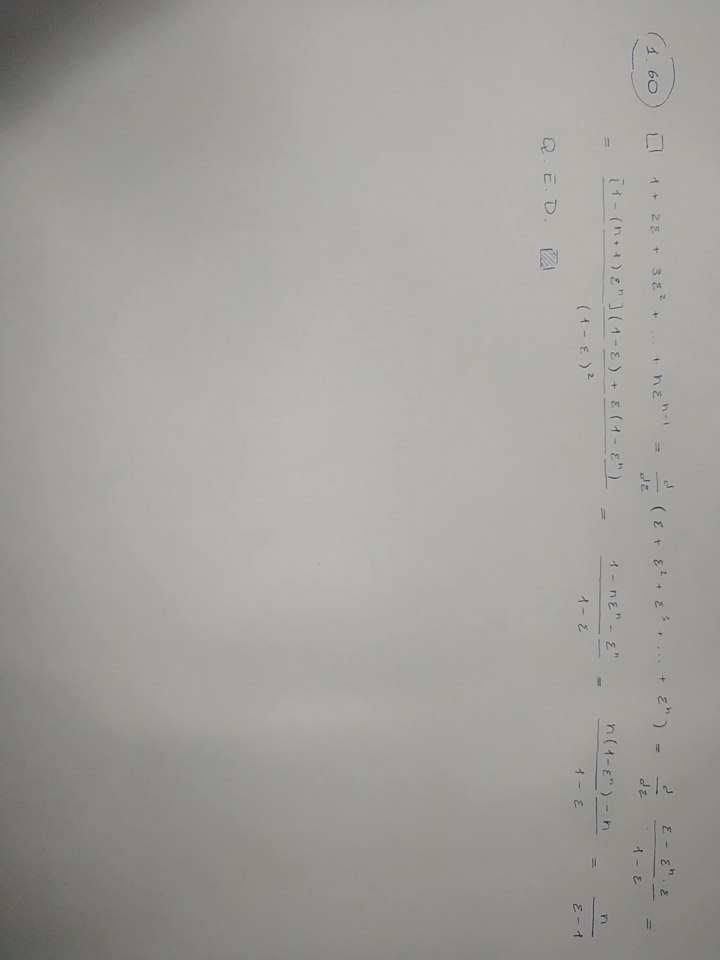 1.60 □ 1 + 2ε + 3ε² + ... + nεⁿ⁻¹ = d/dε (ε + ε² + ε³ + ... + εⁿ) = d/dε (ε - εⁿ·ε)/(1 - ε) =
= ([1 - (n+1)εⁿ](1-ε) + ε(1-εⁿ))/(1-ε)² = (1 - nεⁿ - εⁿ)/(1-ε) = (n(1-εⁿ) - n)/(1-ε) = n/(ε-1)
Q.E.D.